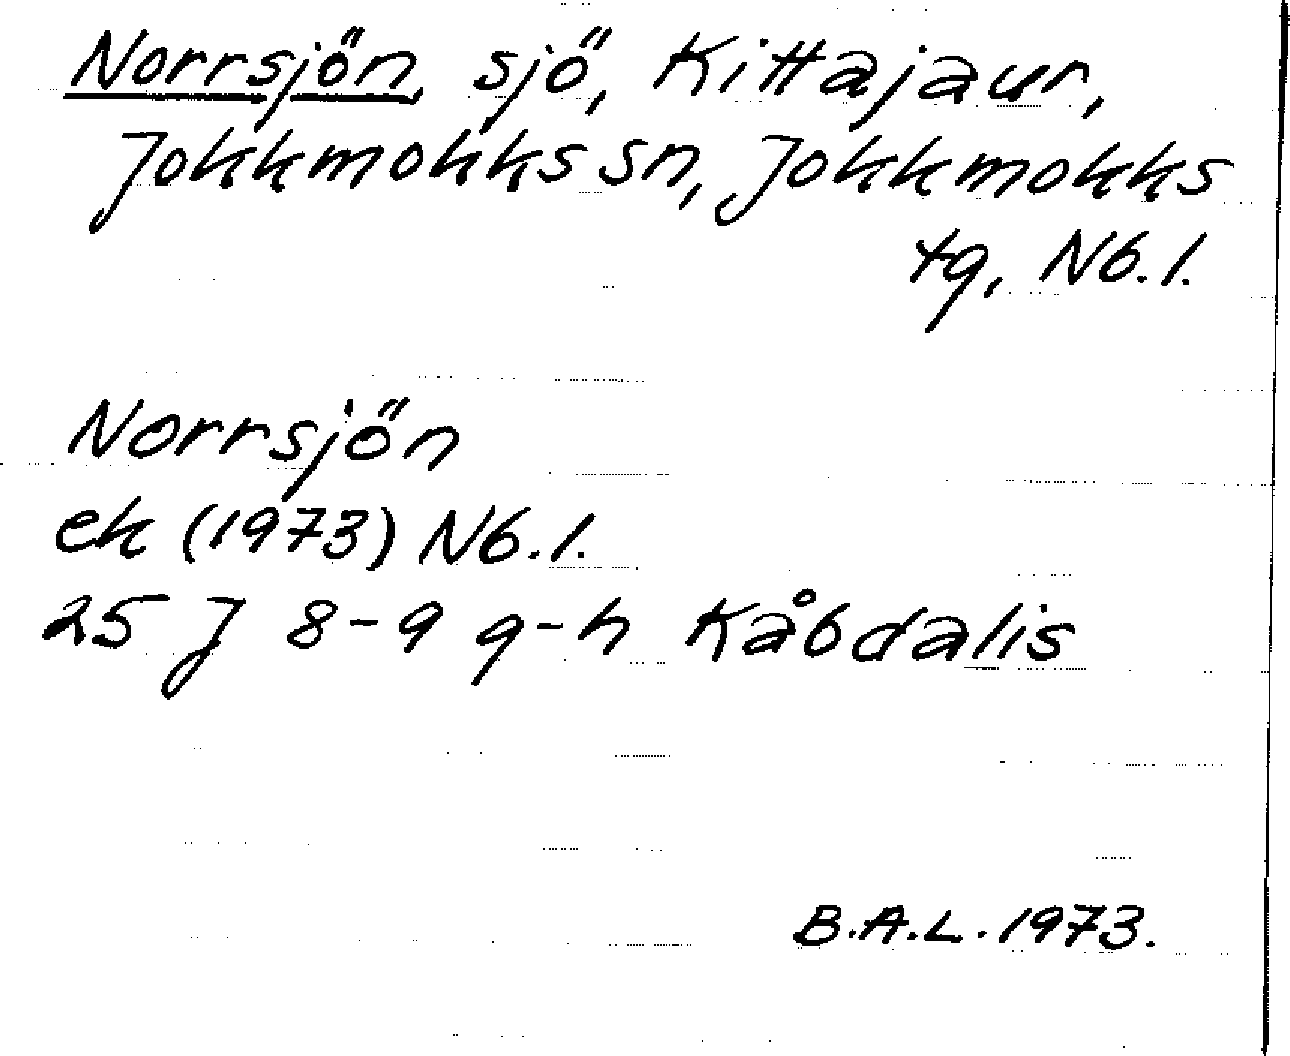 Norrsjön, sjö, Kittajaur,
Jokkmokks sn, Jokkmokks
tg, Nb.l.
Norrsjön
ek (1973) Nb.l.
25 J 8-9 g-h Kåbdalis
B.A.L. 1973.